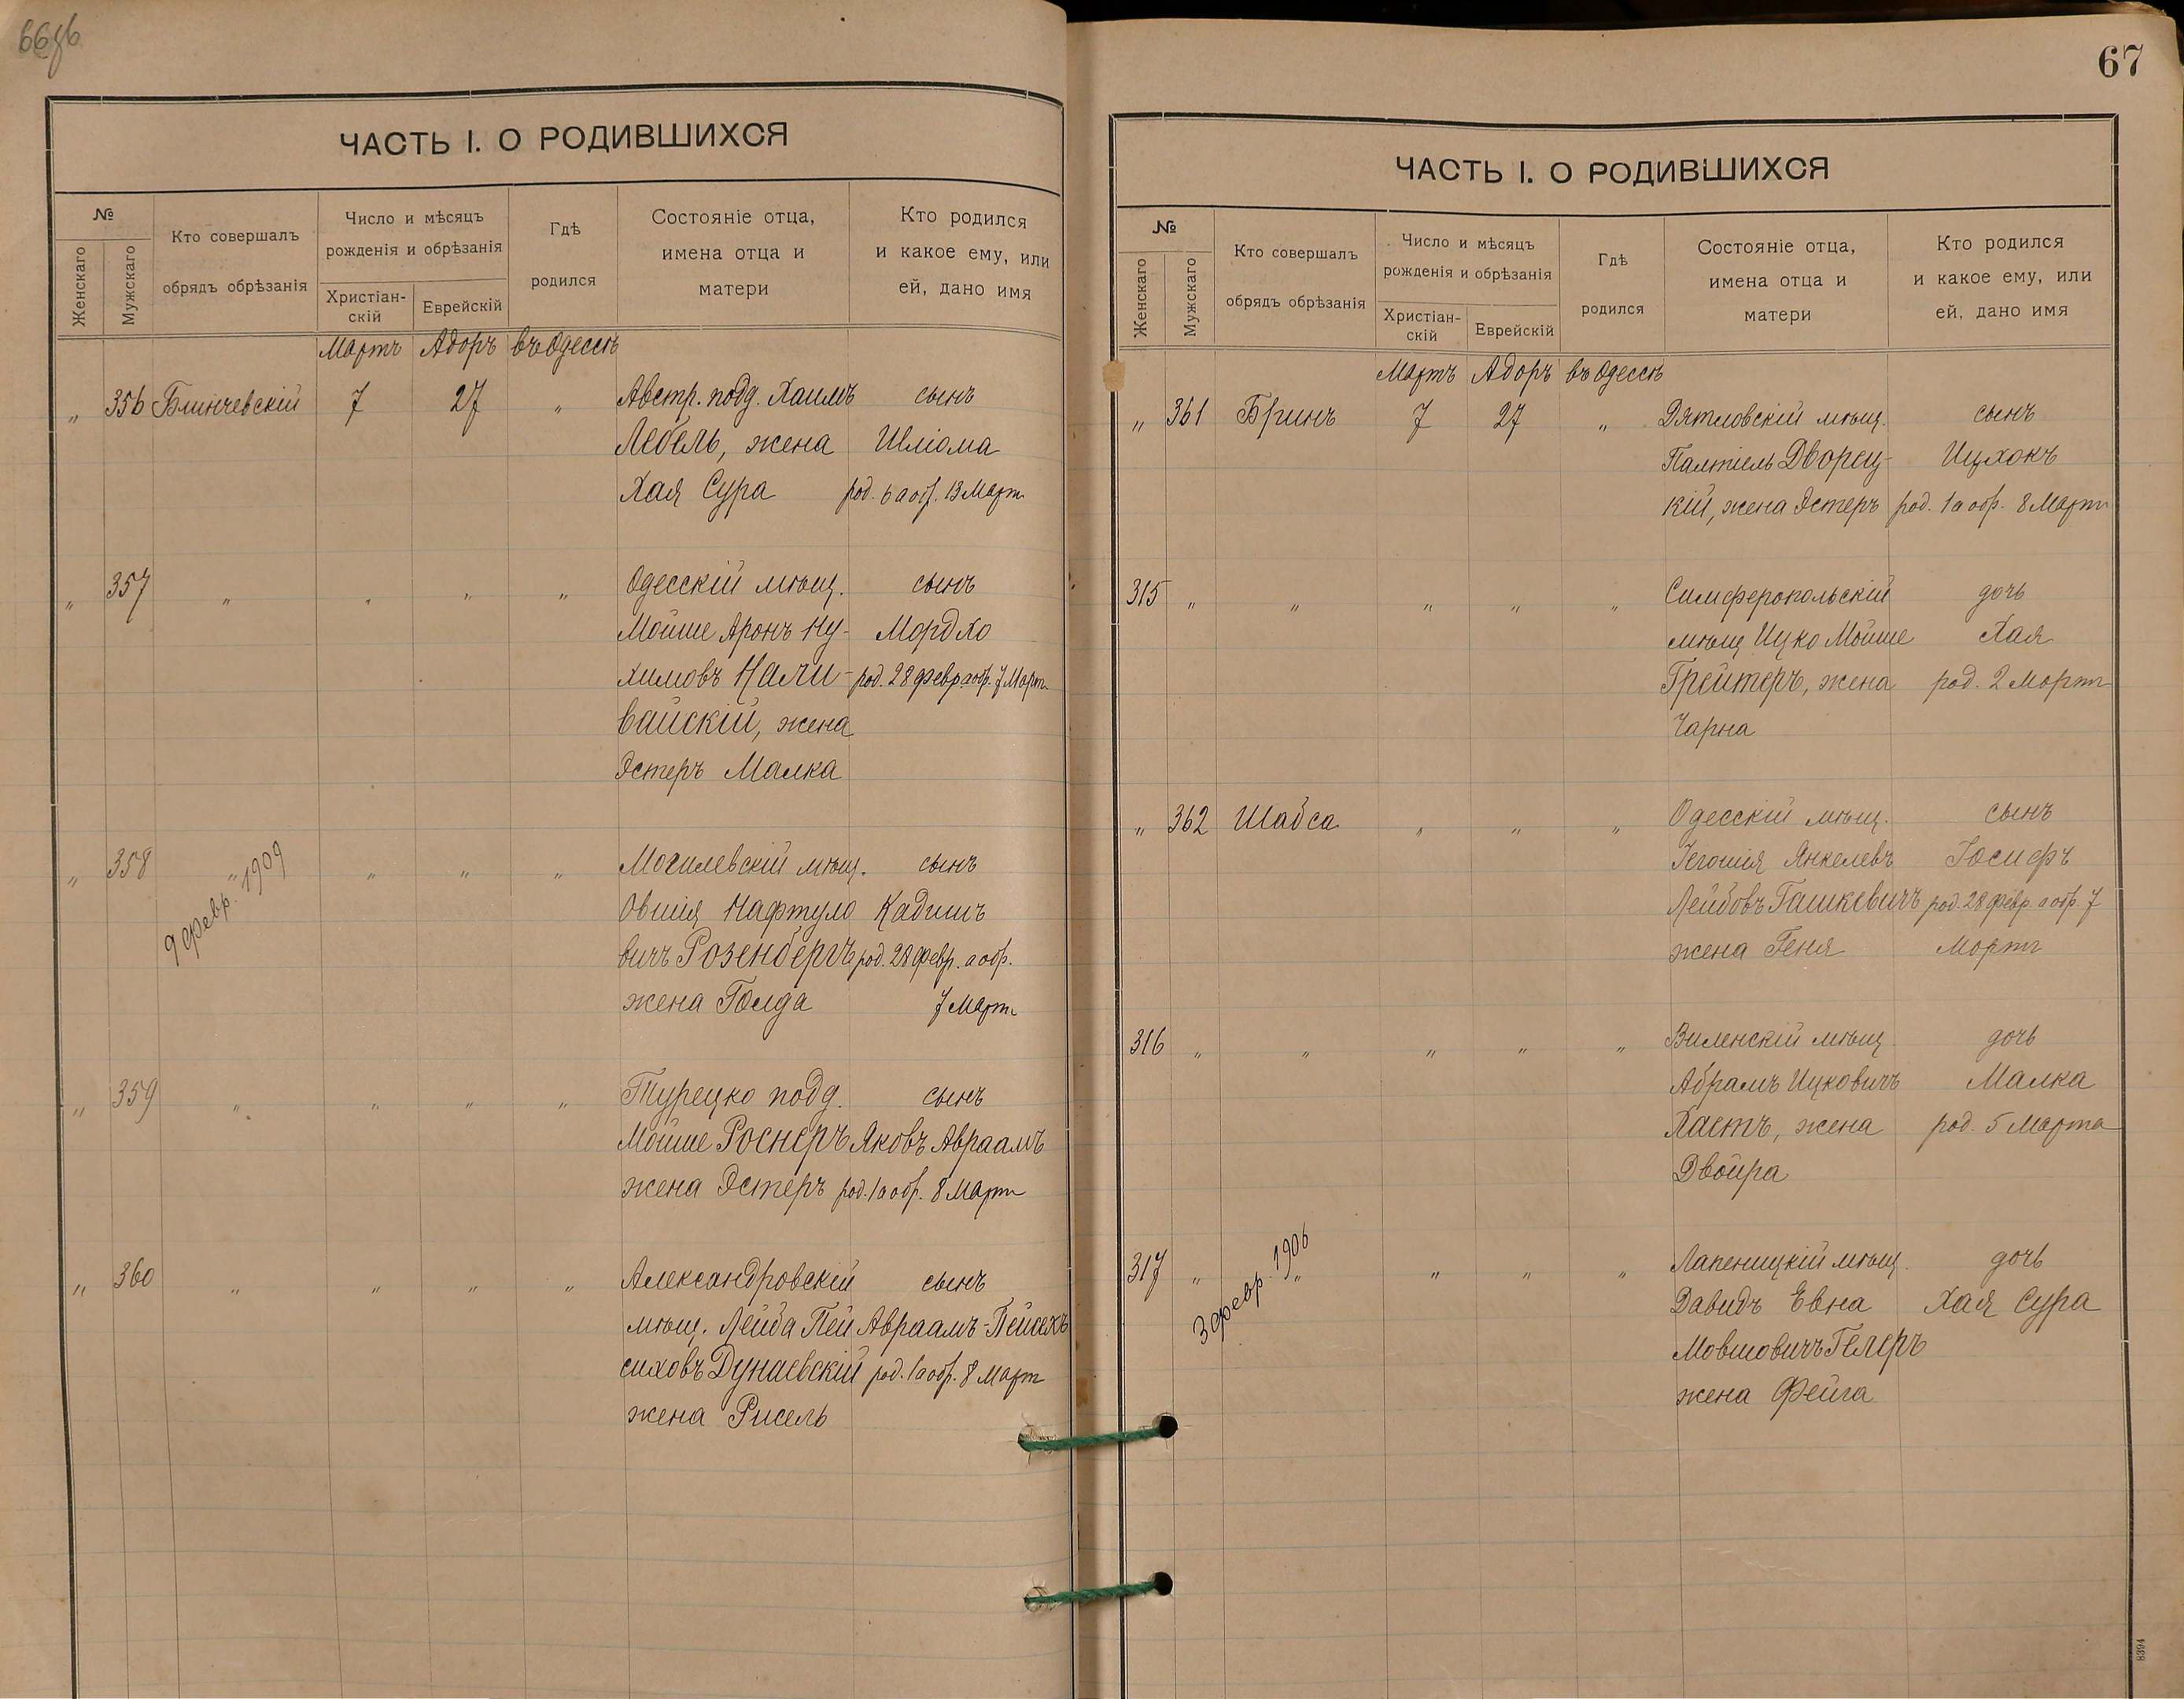 66об
ЧАСТЬ I. О РОДИВШИХСЯ
№
Женскаго
Мужскаго
Кто совершалъ
обрядъ обрѣзанія
Число и мѣсяцъ
рожденія и обрѣзанія
Христіан-
скій
Еврейскій
Гдѣ
родился
Состояніе отца,
имена отца и
матери
Кто родился
и какое ему, или
ей, дано имя
Мартъ Адоръ въ Одессѣ
„ 356 Блинчевскій 7 27 „ Австр. подд. Хаимъ сынъ
Лебель, жена Шліома
Хая Сура род. 6 а обр. 13 Март
„ 357 „ „ „ „ Одесскій мѣщ. сынъ
Мойше Аронъ Ну- Мордхо
химовъ Нали- род. 28 февр а обр. 7 Март
вайскій, жена
Эстеръ Малка
„ 358 „ „ „ „ Могилевскій мѣщ. сынъ
9 февр. 1909
Овшія Нафтуло Кадишъ
вичъ Розенбергъ род. 28 февр. а обр.
жена Голда 7 Март
„ 359 „ „ „ „ Турецко подд. сынъ
Мойше Роснеръ Яковъ Авраамъ
жена Эстеръ род. 1 а обр. 8 Март
„ 360 „ „ „ „ Александровскій сынъ
мѣщ. Лейба Пей Авраамъ-Пейсехъ
сиховъ Дунаевскій род. 1 а обр. 8 Март
жена Рисель
67
ЧАСТЬ I. О РОДИВШИХСЯ
№
Женскаго
Мужскаго
Кто совершалъ
обрядъ обрѣзанія
Число и мѣсяцъ
рожденія и обрѣзанія
Христіан-
скій
Еврейскій
Гдѣ
родился
Состояніе отца,
имена отца и
матери
Кто родился
и какое ему, или
ей, дано имя
Мартъ Адоръ въ Одессѣ
„ 361 Бринъ 7 27 „ Дятловскій мѣщ. сынъ
Палтіель Дворец- Ицхокъ
кій, жена Эстеръ род. 1 а обр. 8 Март
315 „ „ „ „ „ Симферопольскій дочь
мѣщ Ицко Мойше Хая
Грейтеръ, жена род. 2 Март
Чарна
„ 362 Шабса „ „ „ Одесскій мѣщ. сынъ
Іегошія Янкелевъ Іосифъ
Лейбовъ Гашкевичъ род. 28 февр. а обр. 7
жена Геня Март
316 „ „ „ „ „ Виленскій мѣщ. дочь
Абрамъ Ицковичъ Малка
Хаетъ, жена род. 5 Марта
Двойра
317 „ „ „ „ „ Лапеницкій мѣщ. дочь
3 февр. 1906
Давидъ Евна Хая Сура
Мовшовичъ Гелеръ
жена Фейга
8394